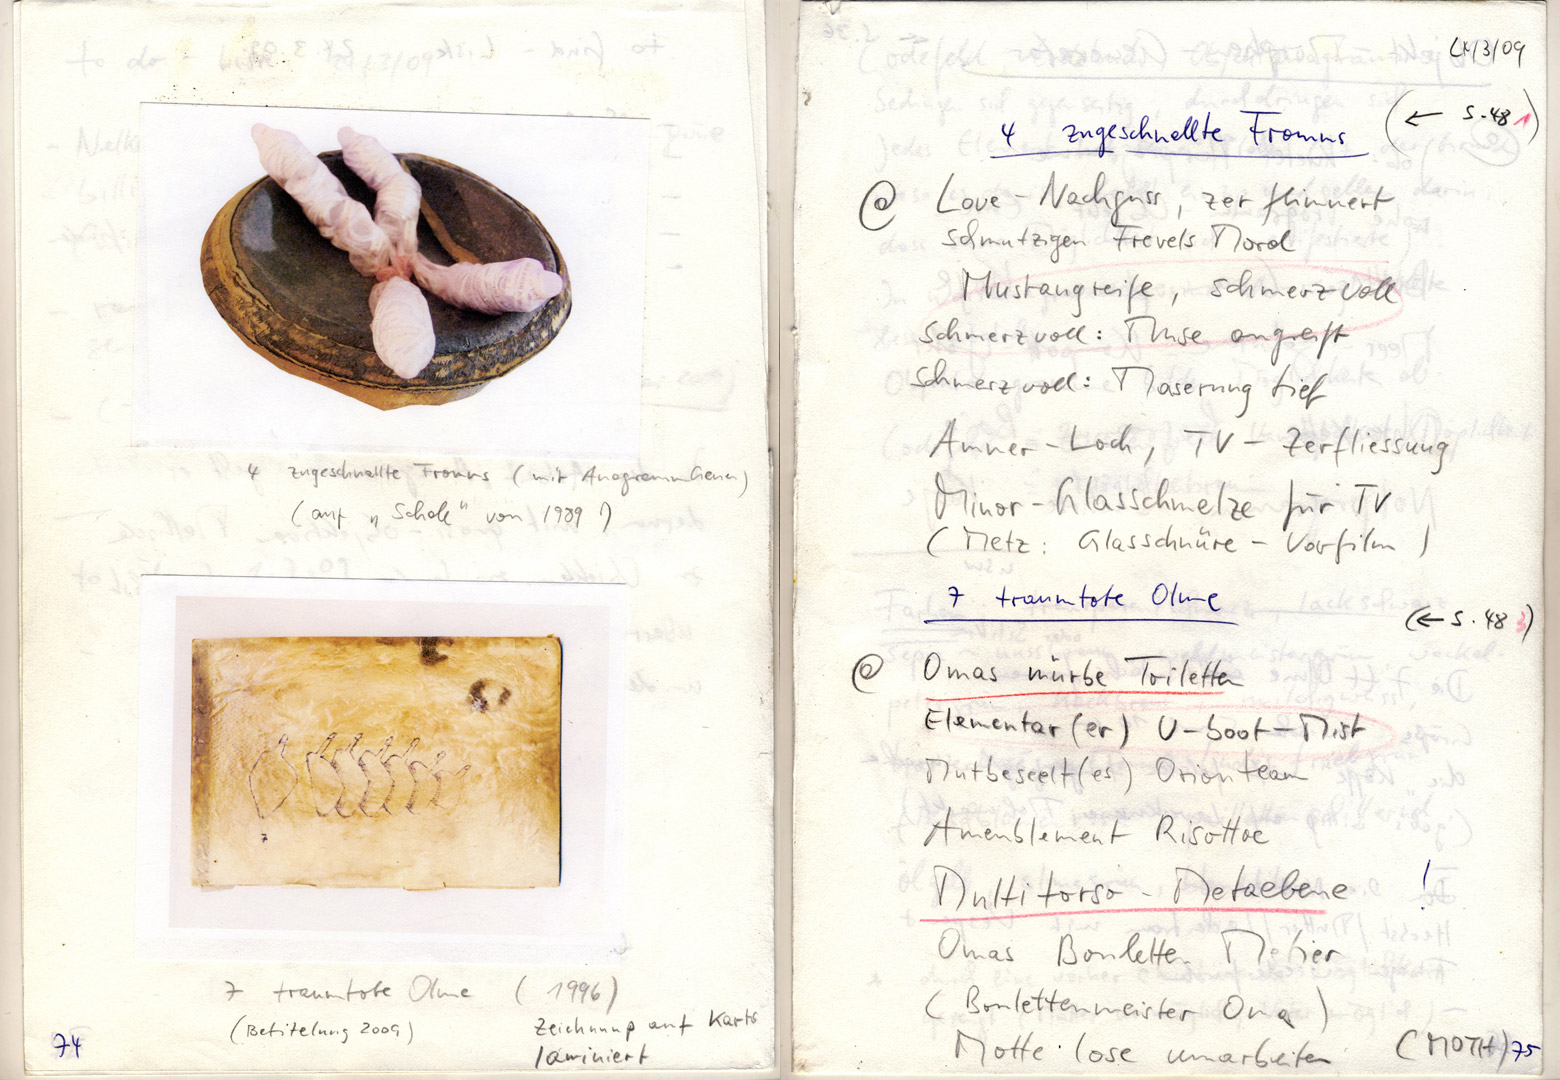 4 zugeschnallte Fromms (mit Anagrammhenn)
(auf "Scholle" von 1989)
7 traumtote Olme (1996)
(Betitelung 2009)
Zeichnung auf Karton
laminiert
74
4/3/09
4 zugeschnallte Fromms
(← S. 48 1)
@ Love-Nachguss, zerflimmert
schmutzigen Frevels Mord
Mustangreife, schmerzvoll
schmerzvoll: Muse angreift
schmerzvoll: Maserung tief
Ammer-Loch, TV-Zerfliessung
Minor-Glasschmelze für TV
(Metz: Glasschnüre-Vorfilm)
usw
7 traumtote Olme
(← S. 48 3)
@ Omas mürbe Toiletten
Elementar(er) U-boot-Mist
Mutbeseelt(es) Orionteam
Ameublement Risottoe
Multitorso-Metaebene !
Omas Bouletten Metier
(Boulettenmeister Oma)
Motte: lose umarbeiten (MOTH)
75